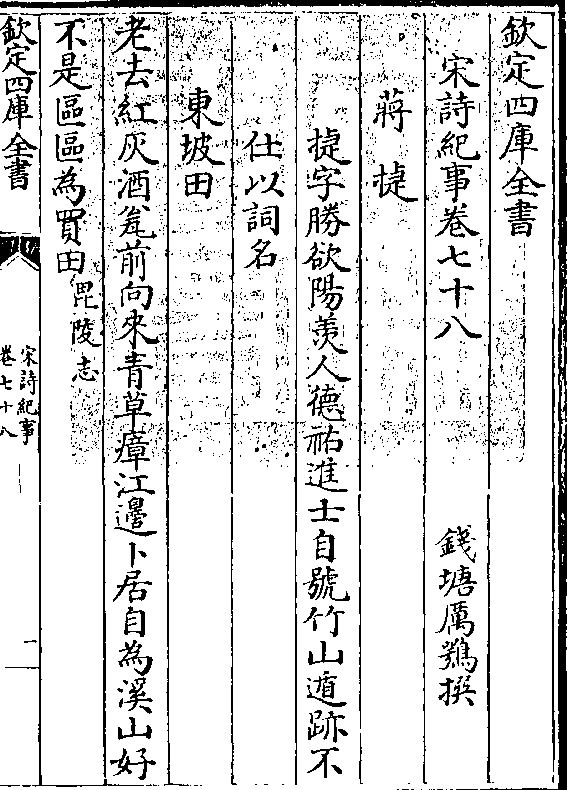 欽定四庫全書
宋詩紀事卷七十八
錢塘厲鶚撰
蔣捷
捷字勝欲陽羨人德祐進士自號竹山遁跡不
仕以詞名
東坡田
老去紅灰酒瓮前向來青草瘴江邊卜居自為溪山好
不是區區為買田毘陵志
欽定四庫全書
宋詩紀事
卷七十八
一